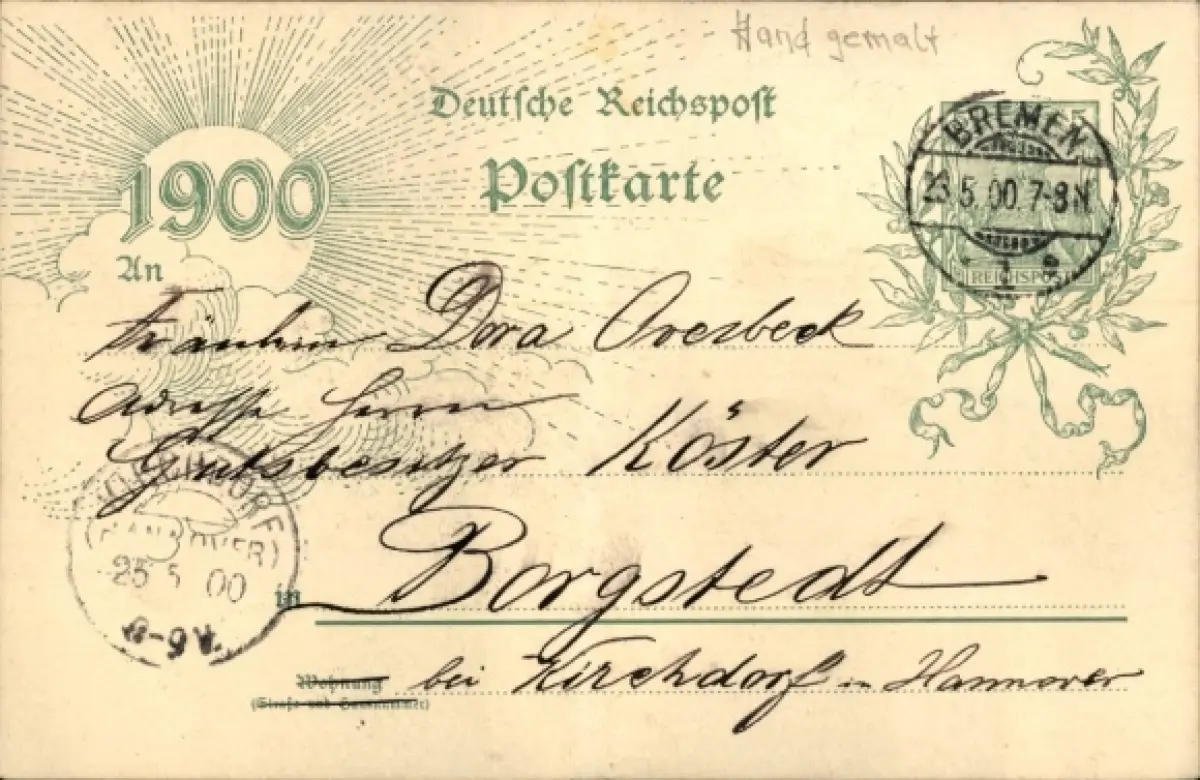 Hand gemalt
Deutsche Reichspost
Postkarte
1900
BREMEN
5.00.7-8N.
1
REICHSPOST
An
Fräulein Dora Overbeck
Adresse Herrn
Gutsbesitzer Köster
KIRCHDORF
(HANNOVER)
25 5 00
8-9V.
in Borgstedt
Wohnung
(Straße und Hausnummer)
bei Kirchdorf in Hannover